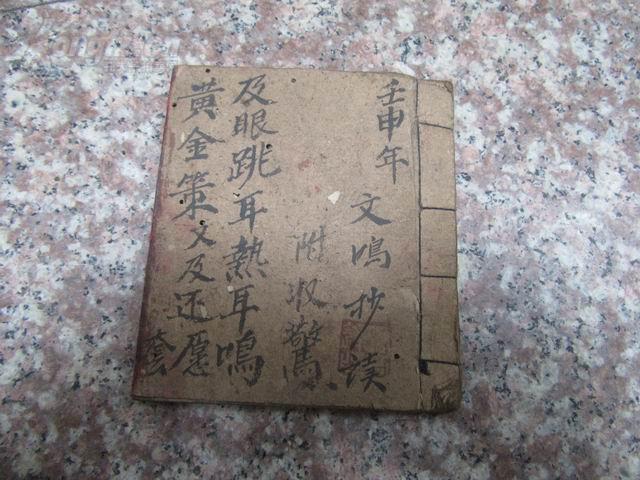 壬申年
文鳴抄读
附收驚
及眼跳耳熱耳鳴
黄金策文及还愿
套